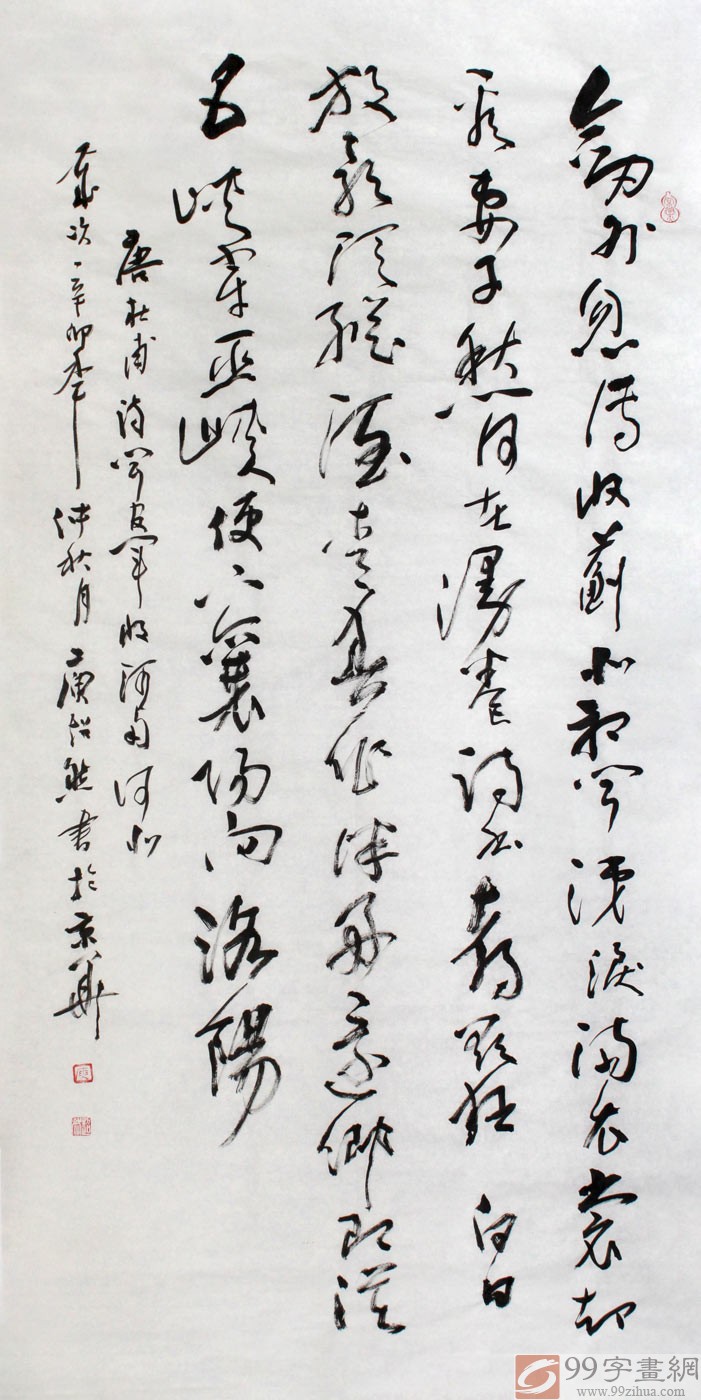 劍外忽傳收薊北初聞涕淚滿衣裳却
看妻子愁何在漫卷詩書喜欲狂白日
放歌須縱酒青春作伴好還鄉即從
巴峽穿巫峽便下襄陽向洛陽
唐杜甫詩聞官軍收河南河北
歲次辛卯年仲秋月紹熊書於京華
99字畫網
www.99zihua.com